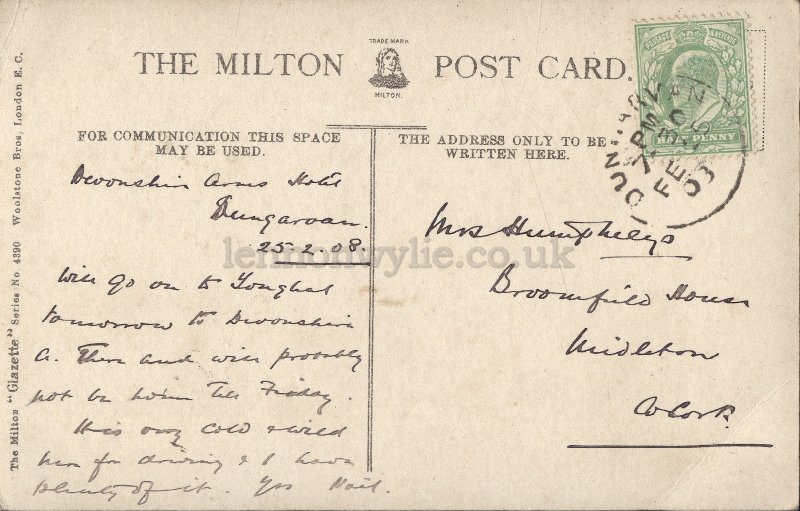 TRADE MARK
MILTON.
THE MILTON POST CARD.
FOR COMMUNICATION THIS SPACE
MAY BE USED.
THE ADDRESS ONLY TO BE
WRITTEN HERE.
The Milton "Glazette" Series No 4390 Woolstone Bros, London E. C.
Devonshire Arms Hotel
Dungarvan.
25.2.08.
Will go on to Youghal
tomorrow to Devonshire
A. There and will probably
not be home till Friday.
It is very cold & wild
here for driving & I have
plenty of it. Yrs
Mrs Humphreys
Broomfield House
Midleton
Co Cork.
POSTAGE & REVENUE
HALF PENNY
DUNGARVAN
FE 25
lennonwylie.co.uk